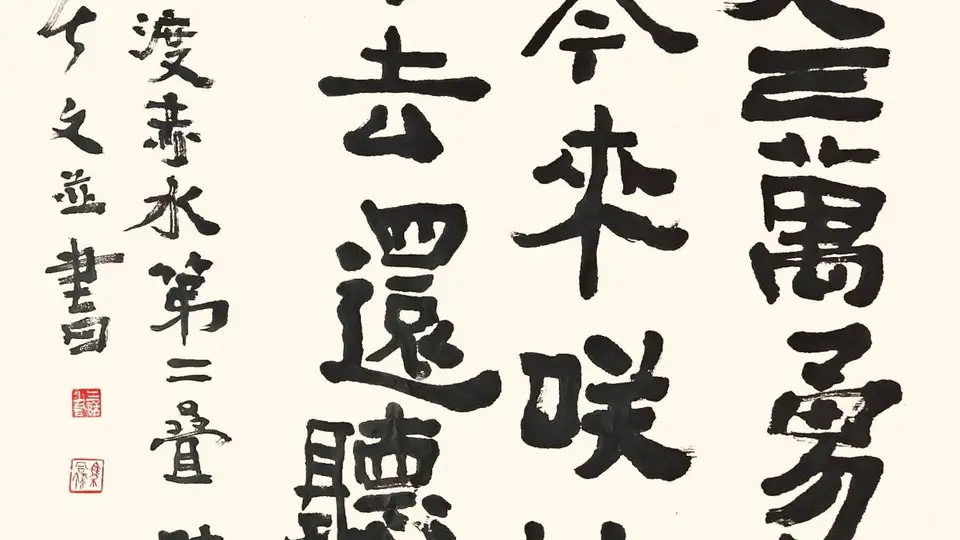 三萬勇
今來咲
去還聽
渡赤水第二叠
文並書